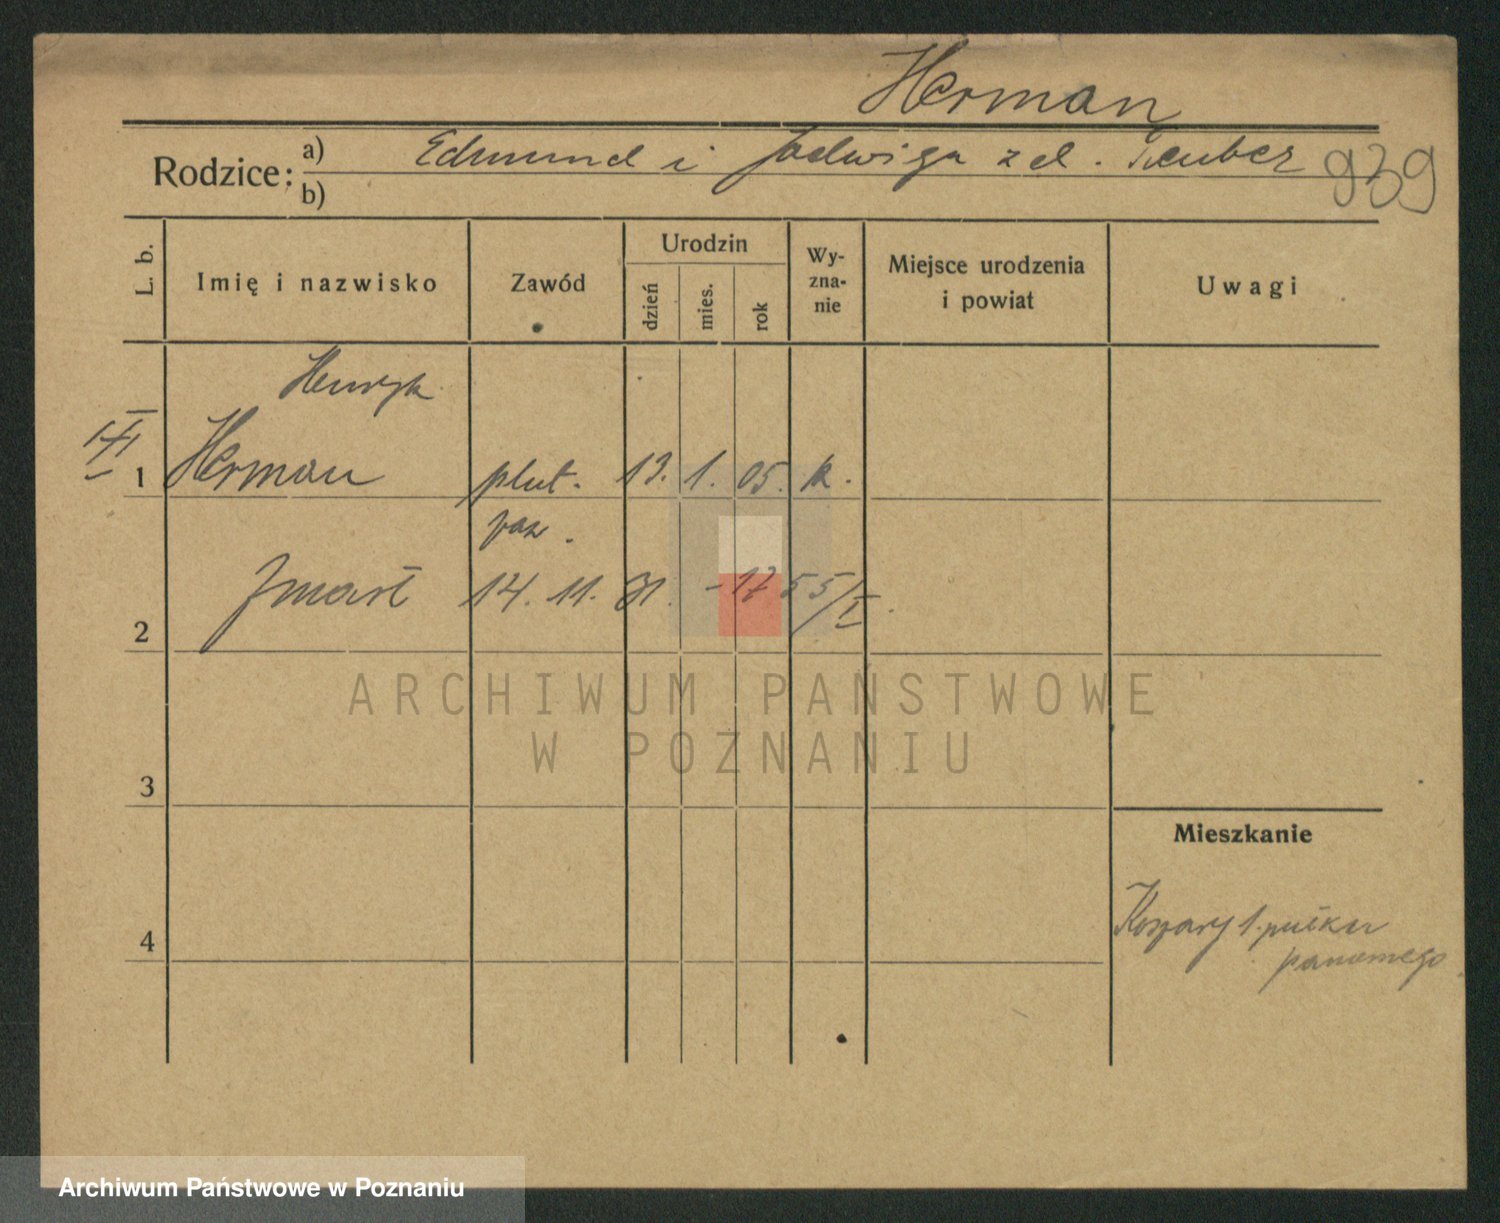 Herman
Rodzice: a) Edmund i Jadwiga z d. Teuber 939
b)
L. b. Imię i nazwisko Zawód Urodzin dzień mies. rok Wy-zna-nie Miejsce urodzenia i powiat Uwagi
Henryk
1 Herman plut. 13. 1. 05. k.
Zmarł 14. 11. 31. - 1755/I.
2
ARCHIWUM PAŃSTWOWE
W POZNANIU
3
Mieszkanie
4 Koszary 1. pułku
pancernego
Archiwum Państwowe w Poznaniu